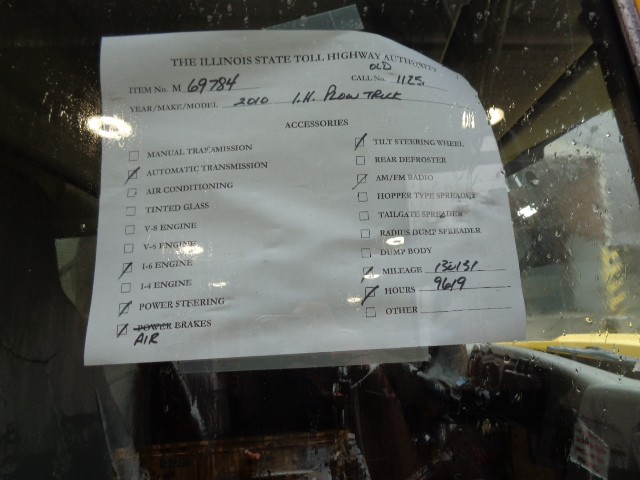 THE ILLINOIS STATE TOLL HIGHWAY AUTHORITY
OLD
ITEM No. M 69784 CALL No. 1125
YEAR/MAKE/MODEL 2010 I.H. PLOW TRUCK
ACCESSORIES
MANUAL TRANSMISSION
AUTOMATIC TRANSMISSION
AIR CONDITIONING
TINTED GLASS
V-8 ENGINE
V-6 ENGINE
I-6 ENGINE
I-4 ENGINE
POWER STEERING
POWER BRAKES
AIR
TILT STEERING WHEEL
REAR DEFROSTER
AM/FM RADIO
HOPPER TYPE SPREADER
TAILGATE SPREADER
RADIUS DUMP SPREADER
DUMP BODY
MILEAGE 130131
HOURS 9619
OTHER